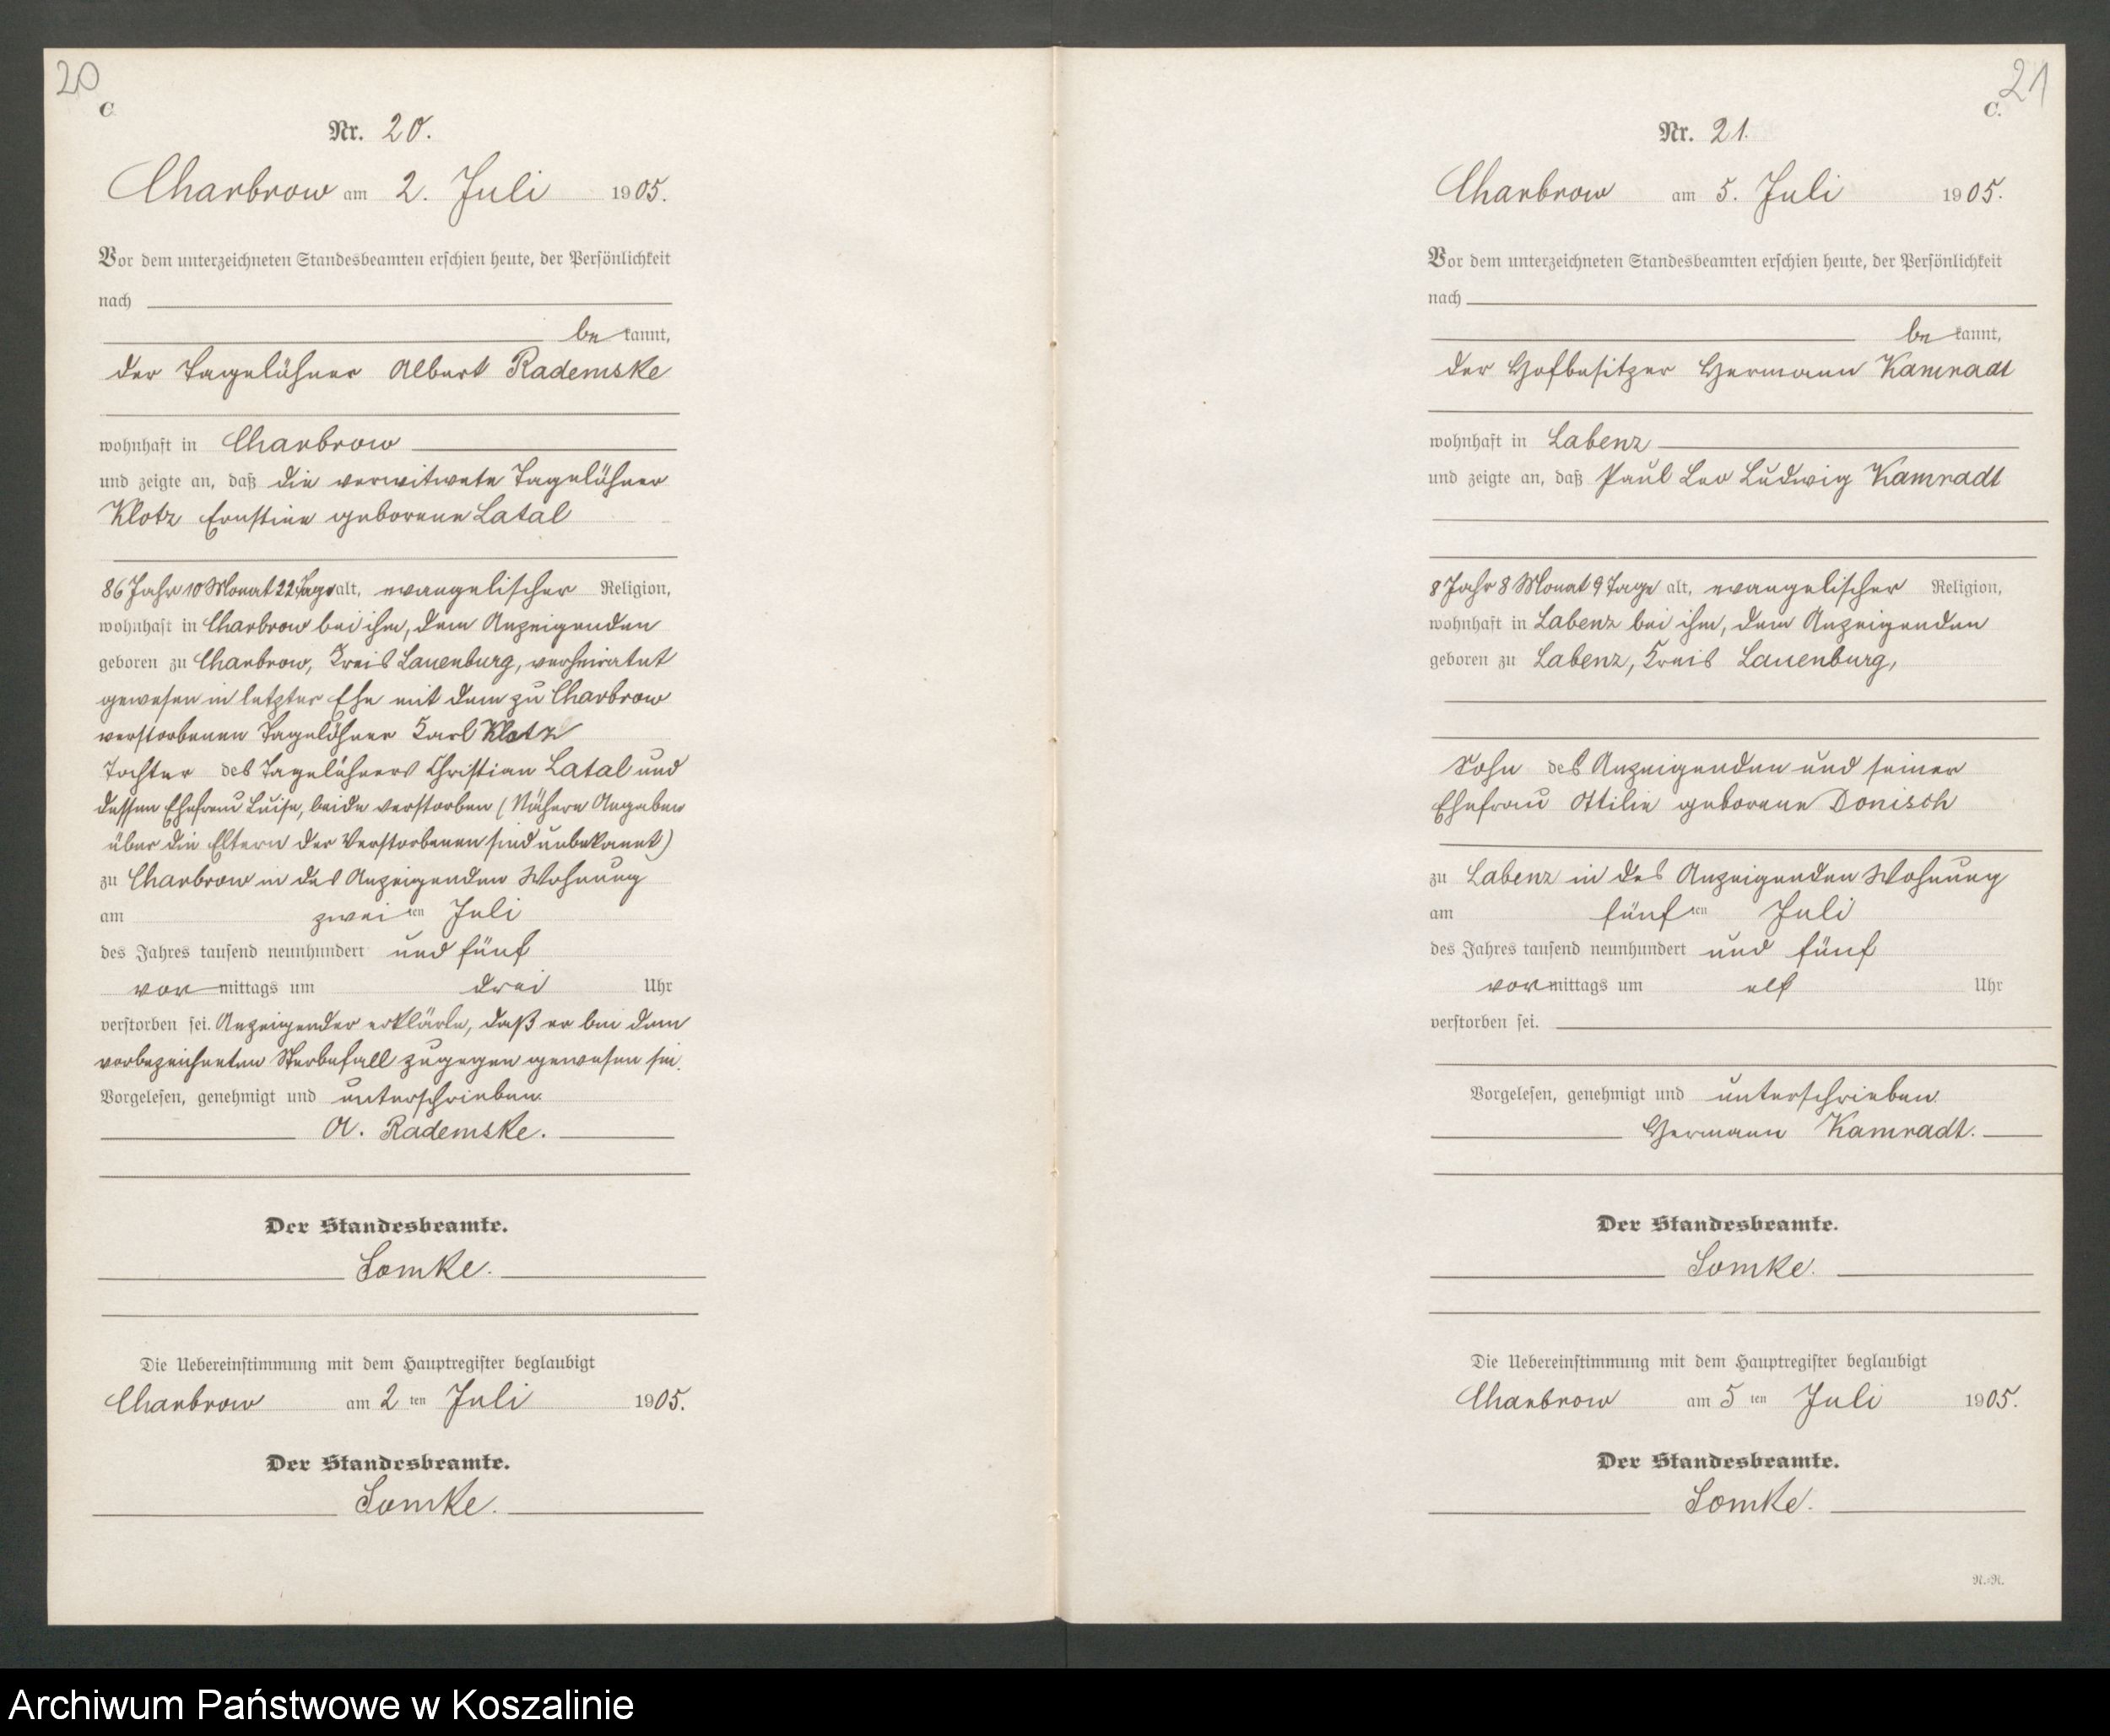 20
C
Nr. 20.
Charbrow am 2. Juli 1905.
Vor dem unterzeichneten Standesbeamten erschien heute, der Persönlichkeit
nach
be kannt,
der Tagelöhner Albert Rademske
wohnhaft in Charbrow
und zeigte an, daß die verwitwete Tagelöhner
Klotz Ernstine geborene Latal
86 Jahr 10 Monat 22 Tage alt, evangelischer Religion,
wohnhaft in Charbrow bei ihm, dem Anzeigenden
geboren zu Charbrow, Kreis Lauenburg, verheiratet
gewesen in letzter Ehe mit dem zu Charbrow
verstorbenen Tagelöhner Karl Klotz
Tochter des Tagelöhners Christian Latal und
dessen Ehefrau Luise, beide verstorben (Nähere Angaben
über die Eltern der Verstorbenen sind unbekannt)
zu Charbrow in des Anzeigenden Wohnung
am zwei ten Juli
des Jahres tausend neunhundert und fünf
vor mittags um drei Uhr
verstorben sei. Anzeigender erklärte, daß er bei dem
vorbezeichneten Sterbefall zugegen gewesen sei.
Vorgelesen, genehmigt und unterschrieben
A. Rademske.
Der Standesbeamte.
Lomke.
Die Uebereinstimmung mit dem Hauptregister beglaubigt
Charbrow am 2 ten Juli 1905.
Der Standesbeamte.
Lomke.
21
C.
Nr. 21.
Charbrow am 5. Juli 1905.
Vor dem unterzeichneten Standesbeamten erschien heute, der Persönlichkeit
nach
be kannt,
der Hofbesitzer Hermann Kamradt
wohnhaft in Labenz
und zeigte an, daß Paul Leo Ludwig Kamradt
8 Jahr 8 Monat 9 Tage alt, evangelischer Religion,
wohnhaft in Labenz bei ihm, dem Anzeigenden
geboren zu Labenz, Kreis Lauenburg,
Sohn des Anzeigenden und seiner
Ehefrau Ottilie geborene Donisch
zu Labenz in des Anzeigenden Wohnung
am fünf ten Juli
des Jahres tausend neunhundert und fünf
vor mittags um elf Uhr
verstorben sei.
Vorgelesen, genehmigt und unterschrieben
Hermann Kamradt.
Der Standesbeamte.
Lomke.
Die Uebereinstimmung mit dem Hauptregister beglaubigt
Charbrow am 5 ten Juli 1905.
Der Standesbeamte.
Lomke.
N.-N.
Archiwum Państwowe w Koszalinie